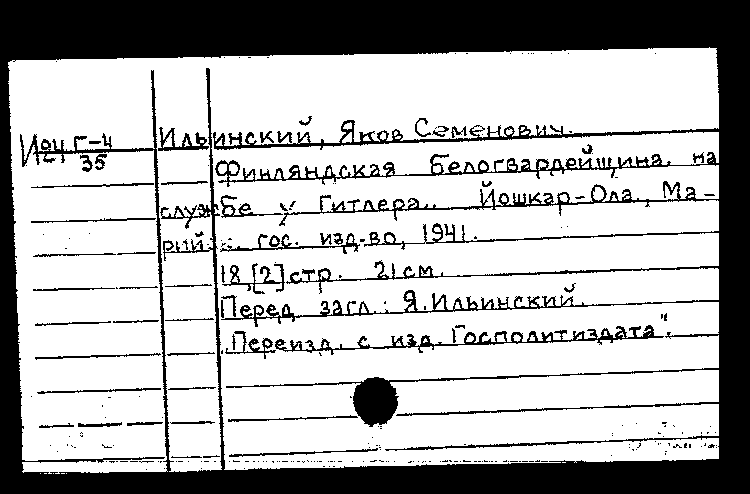 Г-4
35
Ильинский, Яков Семенович.
Финляндская белогвардейщина на
службе у Гитлера. Йошкар-Ола, Ма-
рий. гос. изд-во, 1941.
18,[2]стр. 21см.
Перед загл.: Я.Ильинский.
"Переизд. с изд. Госполитиздата".